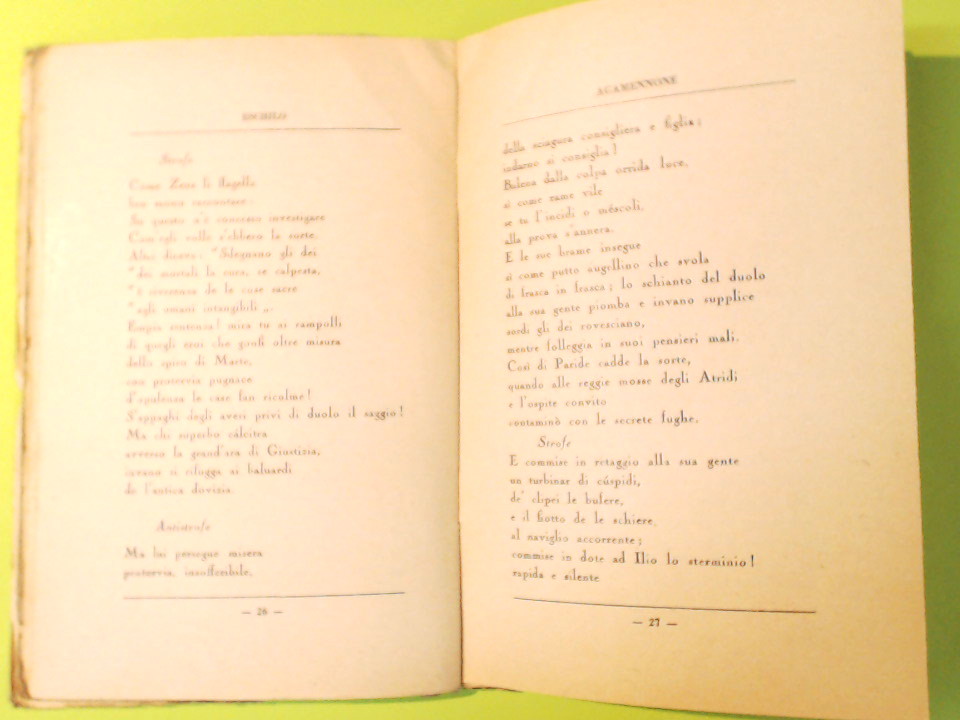 ESCHILO
Strofe
Come Zeus li flagella
ben
In questo n'è concesso investigare
Com'egli volle s'ebbero la sorte.
Altri diceva: "Sdegnano gli dei
"dei mortali la cura, se calpesta,
"è reverenza de le cose sacre
"agli umani intangibili „.
Empia sentenza! mira tu ai rampolli
di quegli eroi che gonfi oltre misura
dello spiro di Marte,
con protervia pugnace
d'opulenza le case fan ricolme!
S'appaghi degli averi privi di duolo il saggio!
Ma chi superbo cálcitra
avverso la grand'ara di Giustizia,
invano si rifugga ai baluardi
de l'antica dovizia.
Antistrofe
Ma lui persegue misera
protervia, insofferibile,
— 26 —
AGAMENNONE
della sciagura consigliera e figlia;
indarno si consiglia!
Balena dalla colpa orrida luce.
sì come rame vile
se tu l'incidi o méscoli,
alla prova s'annera.
E le sue brame insegue
sì come putto augellino che svola
di frasca in frasca; lo schianto del duolo
alla sua gente piomba e invano supplice
sordi gli dei rovesciano,
mentre folleggia in suoi pensieri mali.
Così di Paride cadde la sorte,
quando alle reggie mosse degli Atridi
e l'ospite convito
contaminò con le secrete fughe.
Strofe
E commise in retaggio alla sua gente
un turbinar di cúspidi,
de' clipei le bufere,
e il fiotto de le schiere,
al naviglio accorrente;
commise in dote ad Ilio lo sterminio!
rapida e silente
— 27 —